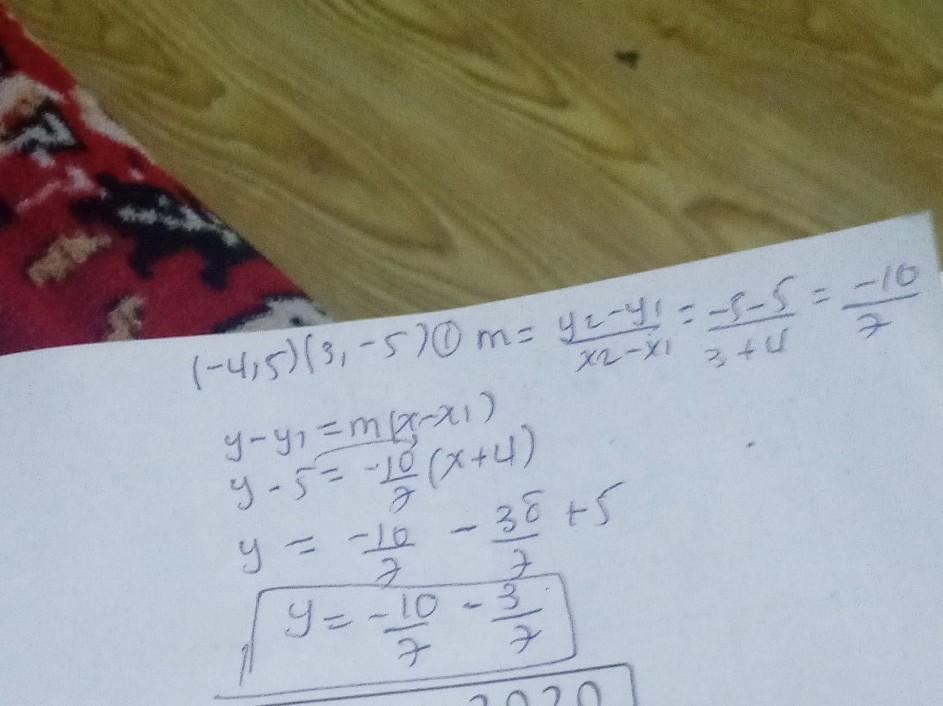 (-4,5)(3,-5)① m = y2-y1/x2-x1 = -5-5/3+4 = -10/7
y-y1 = m(x-x1)
y-5 = -10/7 (x+4)
y = -10/7 - 38/7 +5
y = -10/7 - 3/7
2020